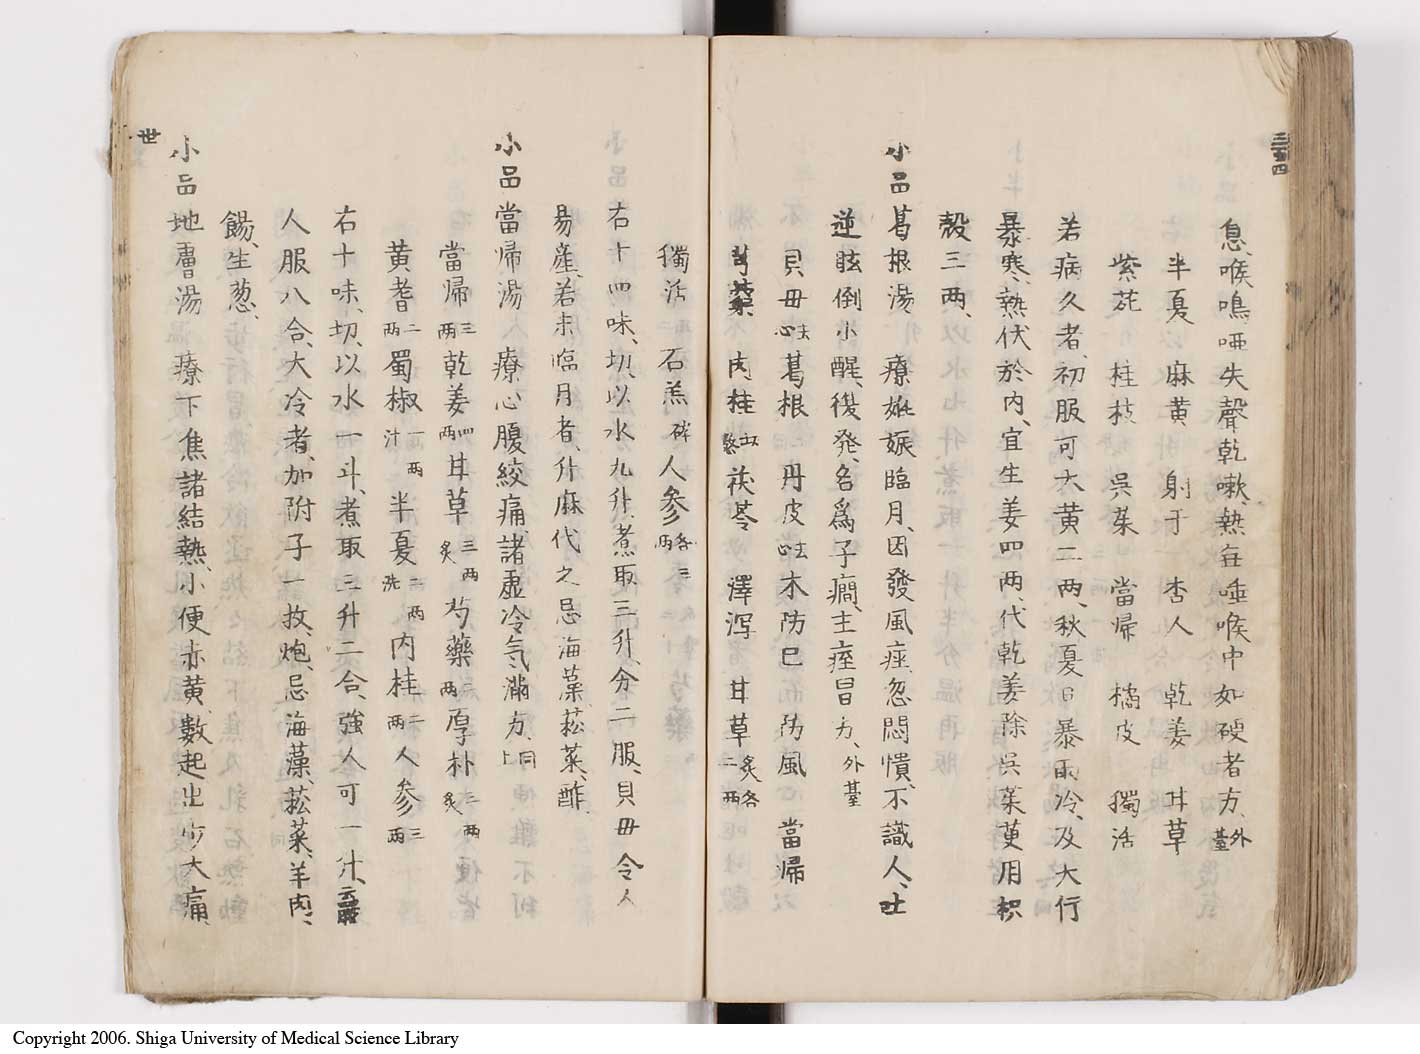 息、喉鳴、唖失聲乾嗽、熱在唾喉中如硬者方、外臺
半夏 麻黄 射干 杏人 乾姜 甘草
紫菀 桂枝 呉茱 當歸 橘皮 獨活
若病久者、初服可大黄二両、秋夏日暴雨冷、及大行
暴寒、熱伏於内、宜生姜四両、代乾姜除呉茱萸用枳
殻三両、
小品葛根湯 療妊娠臨月、因發風痙、忽悶憒、不識人、吐
逆眩倒小醒、復発、名為子癇、主痙冒方、外臺
貝母去心葛根 丹皮去心木防已 防風 當歸
芎藭 肉桂 茯苓 澤瀉 甘草炙各二両
獨活 石羔碎人参各三両
右十四味、切、以水九升、煮取三升、分二服、貝母令人
易産、若未臨月者、升麻代之忌海藻菘菜、酢、
小品當歸湯 療心腹絞痛諸虚冷气満方、同上
當歸三両乾姜四両甘草三両炙芍藥二両厚朴二両炙
黄耆二両蜀椒一両汁半夏二両洗肉桂二両人参三両
右十味、切、以水一斗、煮取三升二合、強人可一升、
人服八合、大冷者、加附子一枚、炮、忌海藻、菘菜、羊肉、
餳、生葱、
小品地膚湯 療下焦諸結熱、小便赤黄、數起出少大痛、
世